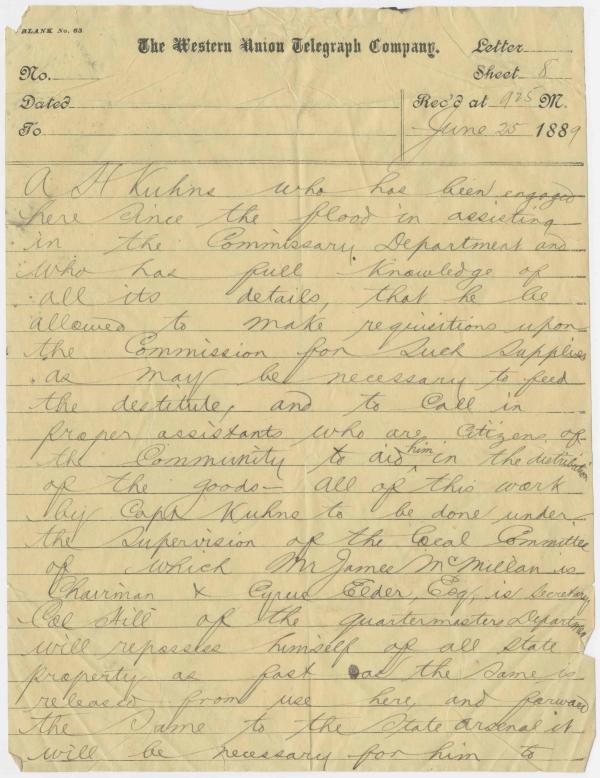 BLANK No. 63.
The Western Union Telegraph Company.
Letter
No.
Sheet 8
Dated
Rec'd at 925 M.
To
June 25 1889
A H Kuhns who has been engaged
here since the flood in assisting
in the Commissary Department and
who has full knowledge of
all its details, that he be
allowed to make requisitions upon
the Commission for such supplies
as may be necessary to feed
the destitute, and to call in
proper assistants who are citizens of
the Community to aid him in the distribution
of the goods — all of this work
by Capt Kuhns to be done under
the supervision of the Local Committee
of which Mr James McMillan is
Chairman & Cyrus Elder, Esq, is Secretary
Col Hill of the quartermasters Department
will repossess himself of all state
property as fast as the same is
released from use here, and forward
the same to the State arsenal it
will be necessary for him to